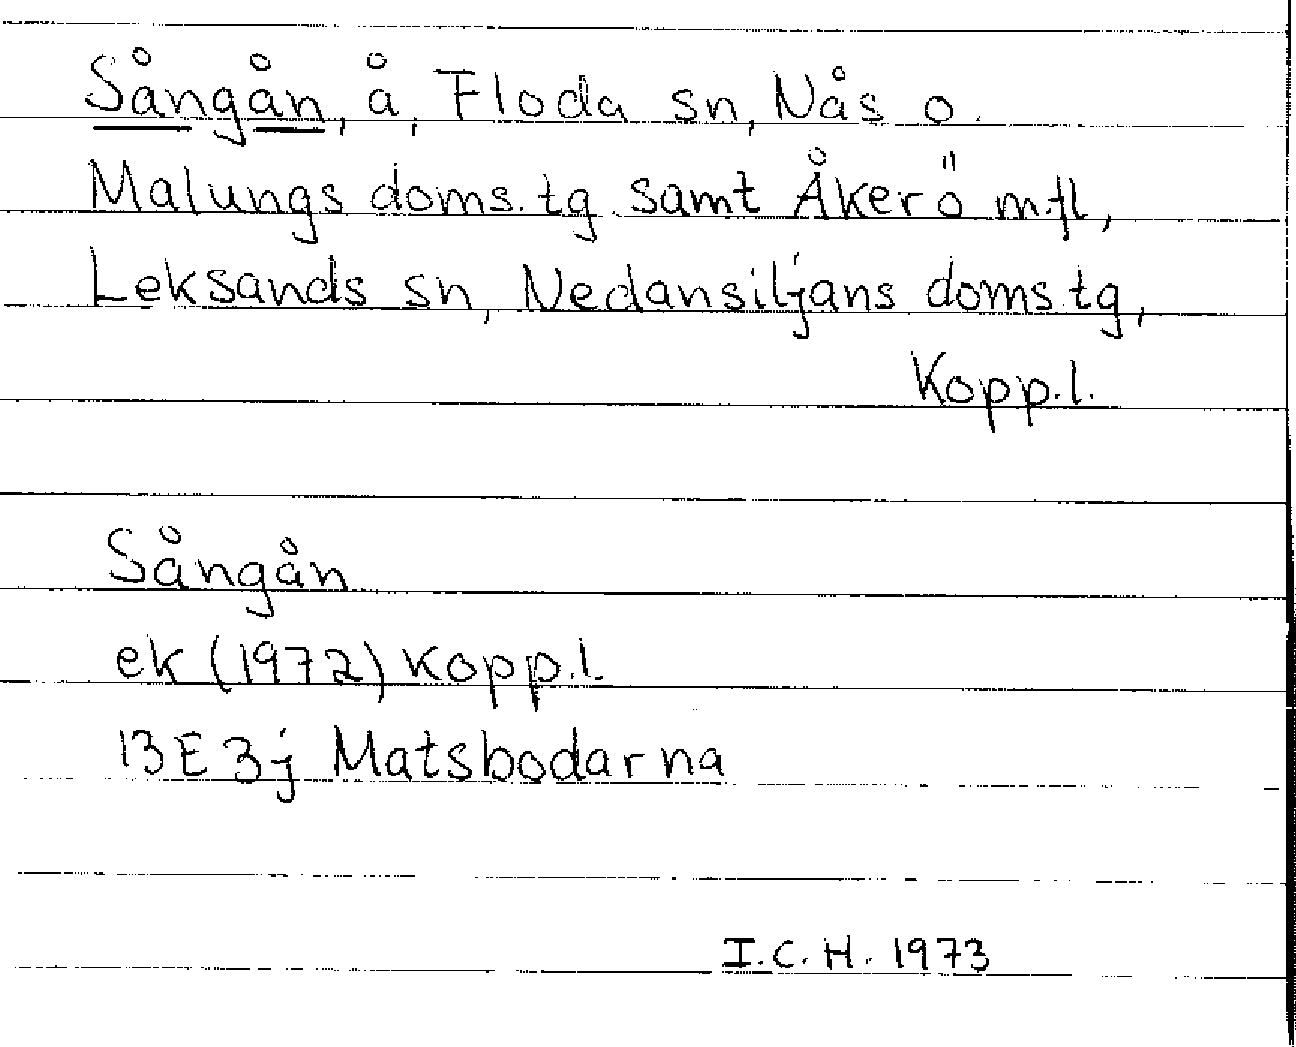 Sångån, å, Floda sn, Nås o.
Malungs doms.tg. samt Åkerö m.fl,
Leksands sn, Nedansiljans doms.tg,
Kopp.l.
Sångån
ek (1972) Kopp.l.
13E 3j Matsbodarna
I.C.H. 1973